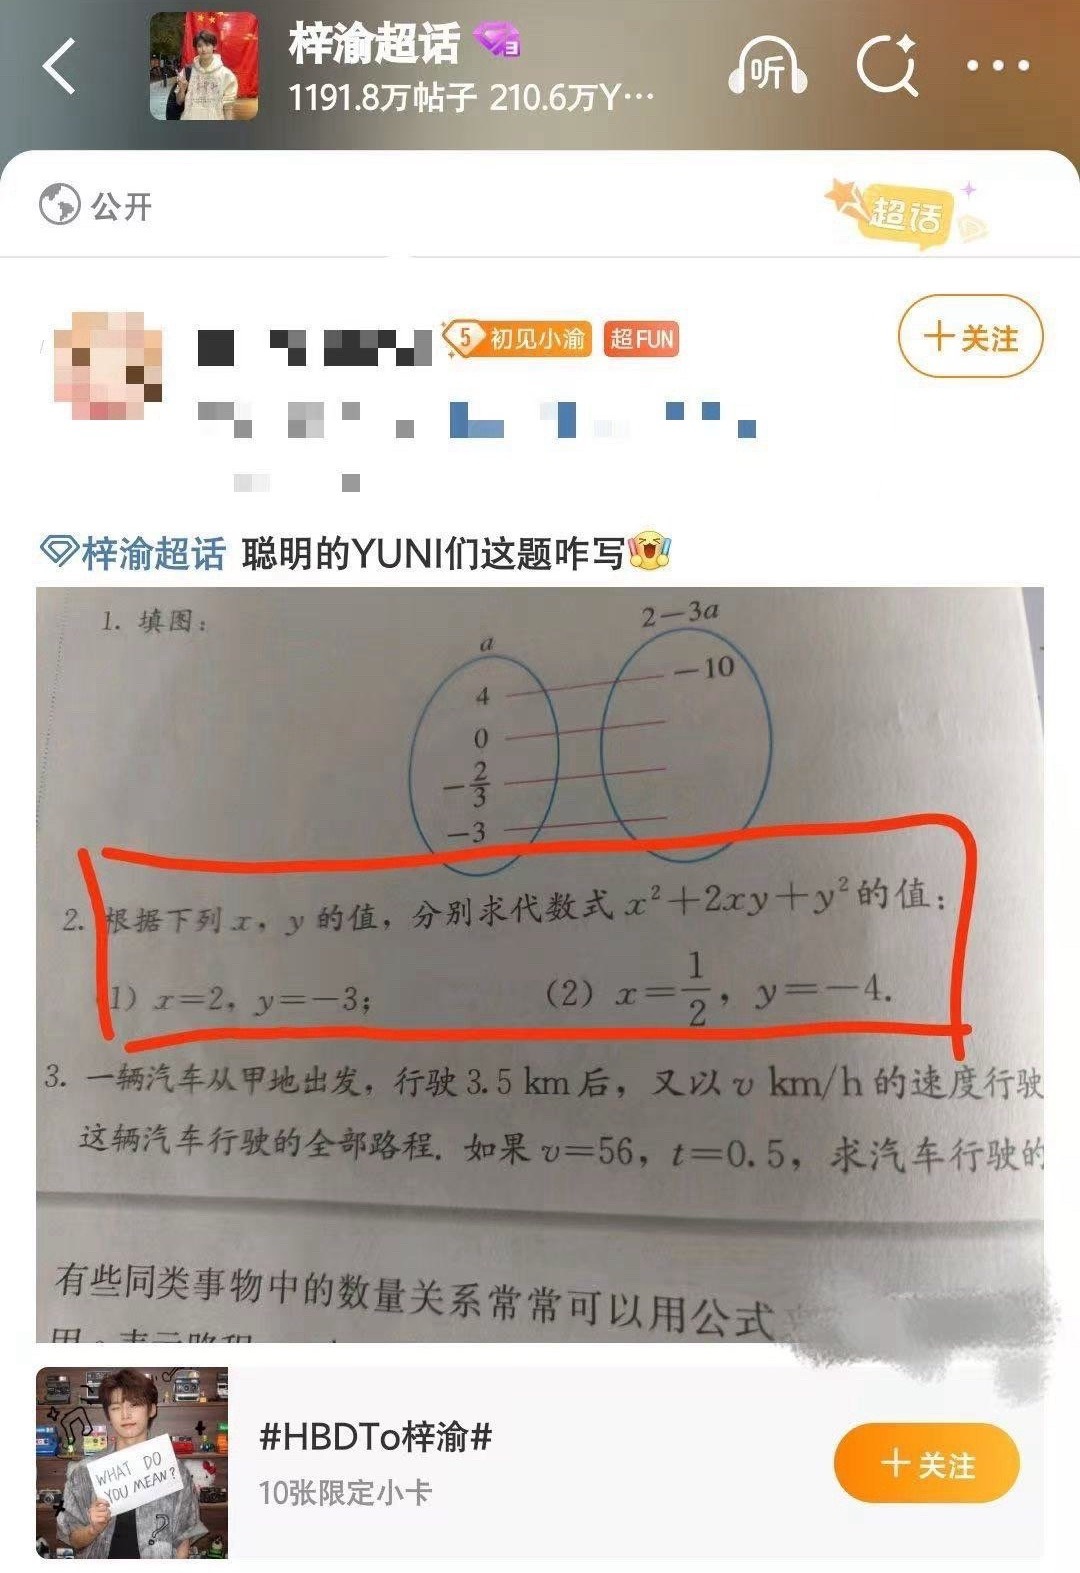 梓渝超话 3
1191.8万帖子 210.6万Y…
听
公开
超话
5 初见小渝 超FUN
+关注
梓渝超话 聪明的YUNI们这题咋写
1. 填图：
a
2－3a
4
－10
0
－2/3
－3
2. 根据下列 x，y 的值，分别求代数式 x²＋2xy＋y² 的值：
1) x＝2，y＝－3；
(2) x＝1/2，y＝－4.
3. 一辆汽车从甲地出发，行驶 3.5 km 后，又以 v km/h 的速度行驶
这辆汽车行驶的全部路程. 如果 v＝56，t＝0.5，求汽车行驶的
有些同类事物中的数量关系常常可以用公式
WHAT DO
YOU MEAN?
#HBDTo梓渝#
10张限定小卡
+关注